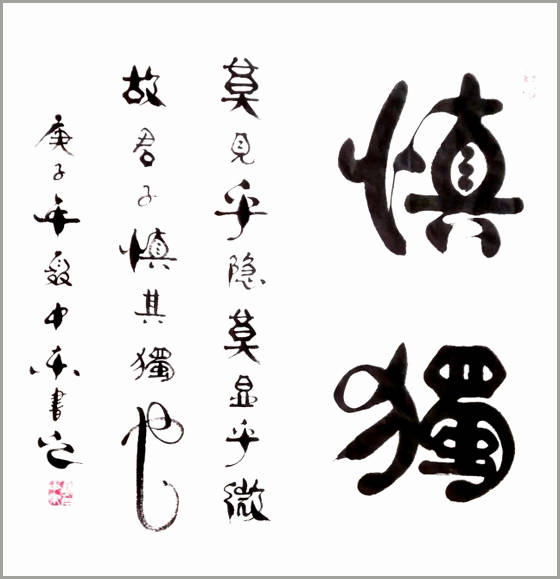 慎獨
莫見乎隐莫显乎微
故君子慎其獨也
庚子年夏中亦書之